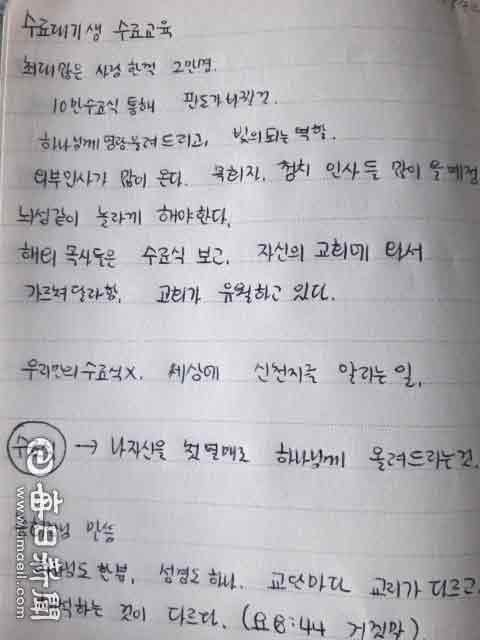 수료대기생 수료교육
최대 많은 사명 한격 2만명.
10만수료식 통해 판도가 뒤집힌
하나님께 영광올려드리고, 빛이되는 역할.
외부인사가 많이 온다. 목회자, 정치 인사들 많이 올예정
뇌섬같이 놀라게 해야한다.
해외 목사들은 수료식 보고, 자신의 교회에 와서
가르쳐달라함. 교회가 유월하고 있다.
우리만의 수료식X. 세상에 신천지를 알리는일.
→ 나자신을 첫열매로 하나님께 올려드리는것.
말씀
한분, 성경도 하나. 교단마다 교리가 다르고
하는 것이 다르다. (요8:44 거짓말)
每日新聞
www.imaeil.com